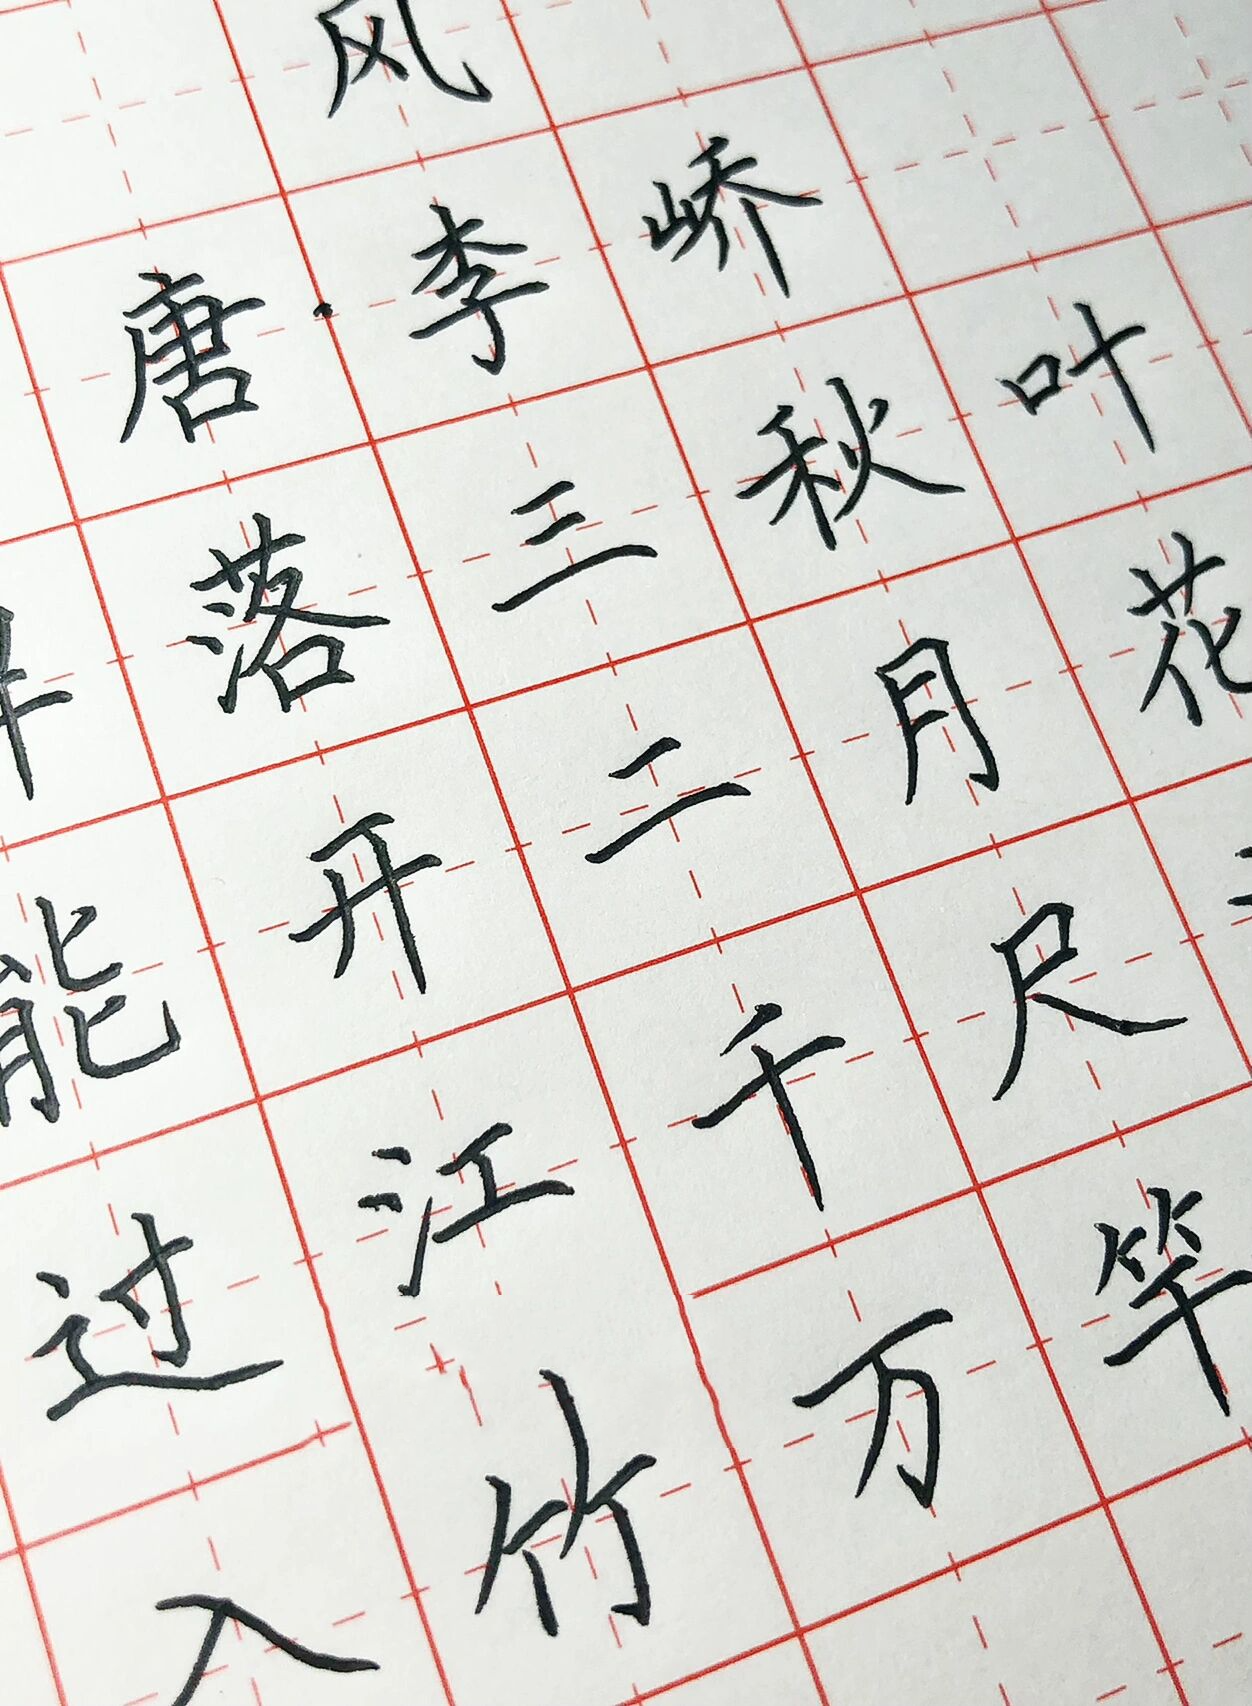 风
唐·李峤
落三秋叶
能开二月花
过江千尺
入竹万竿